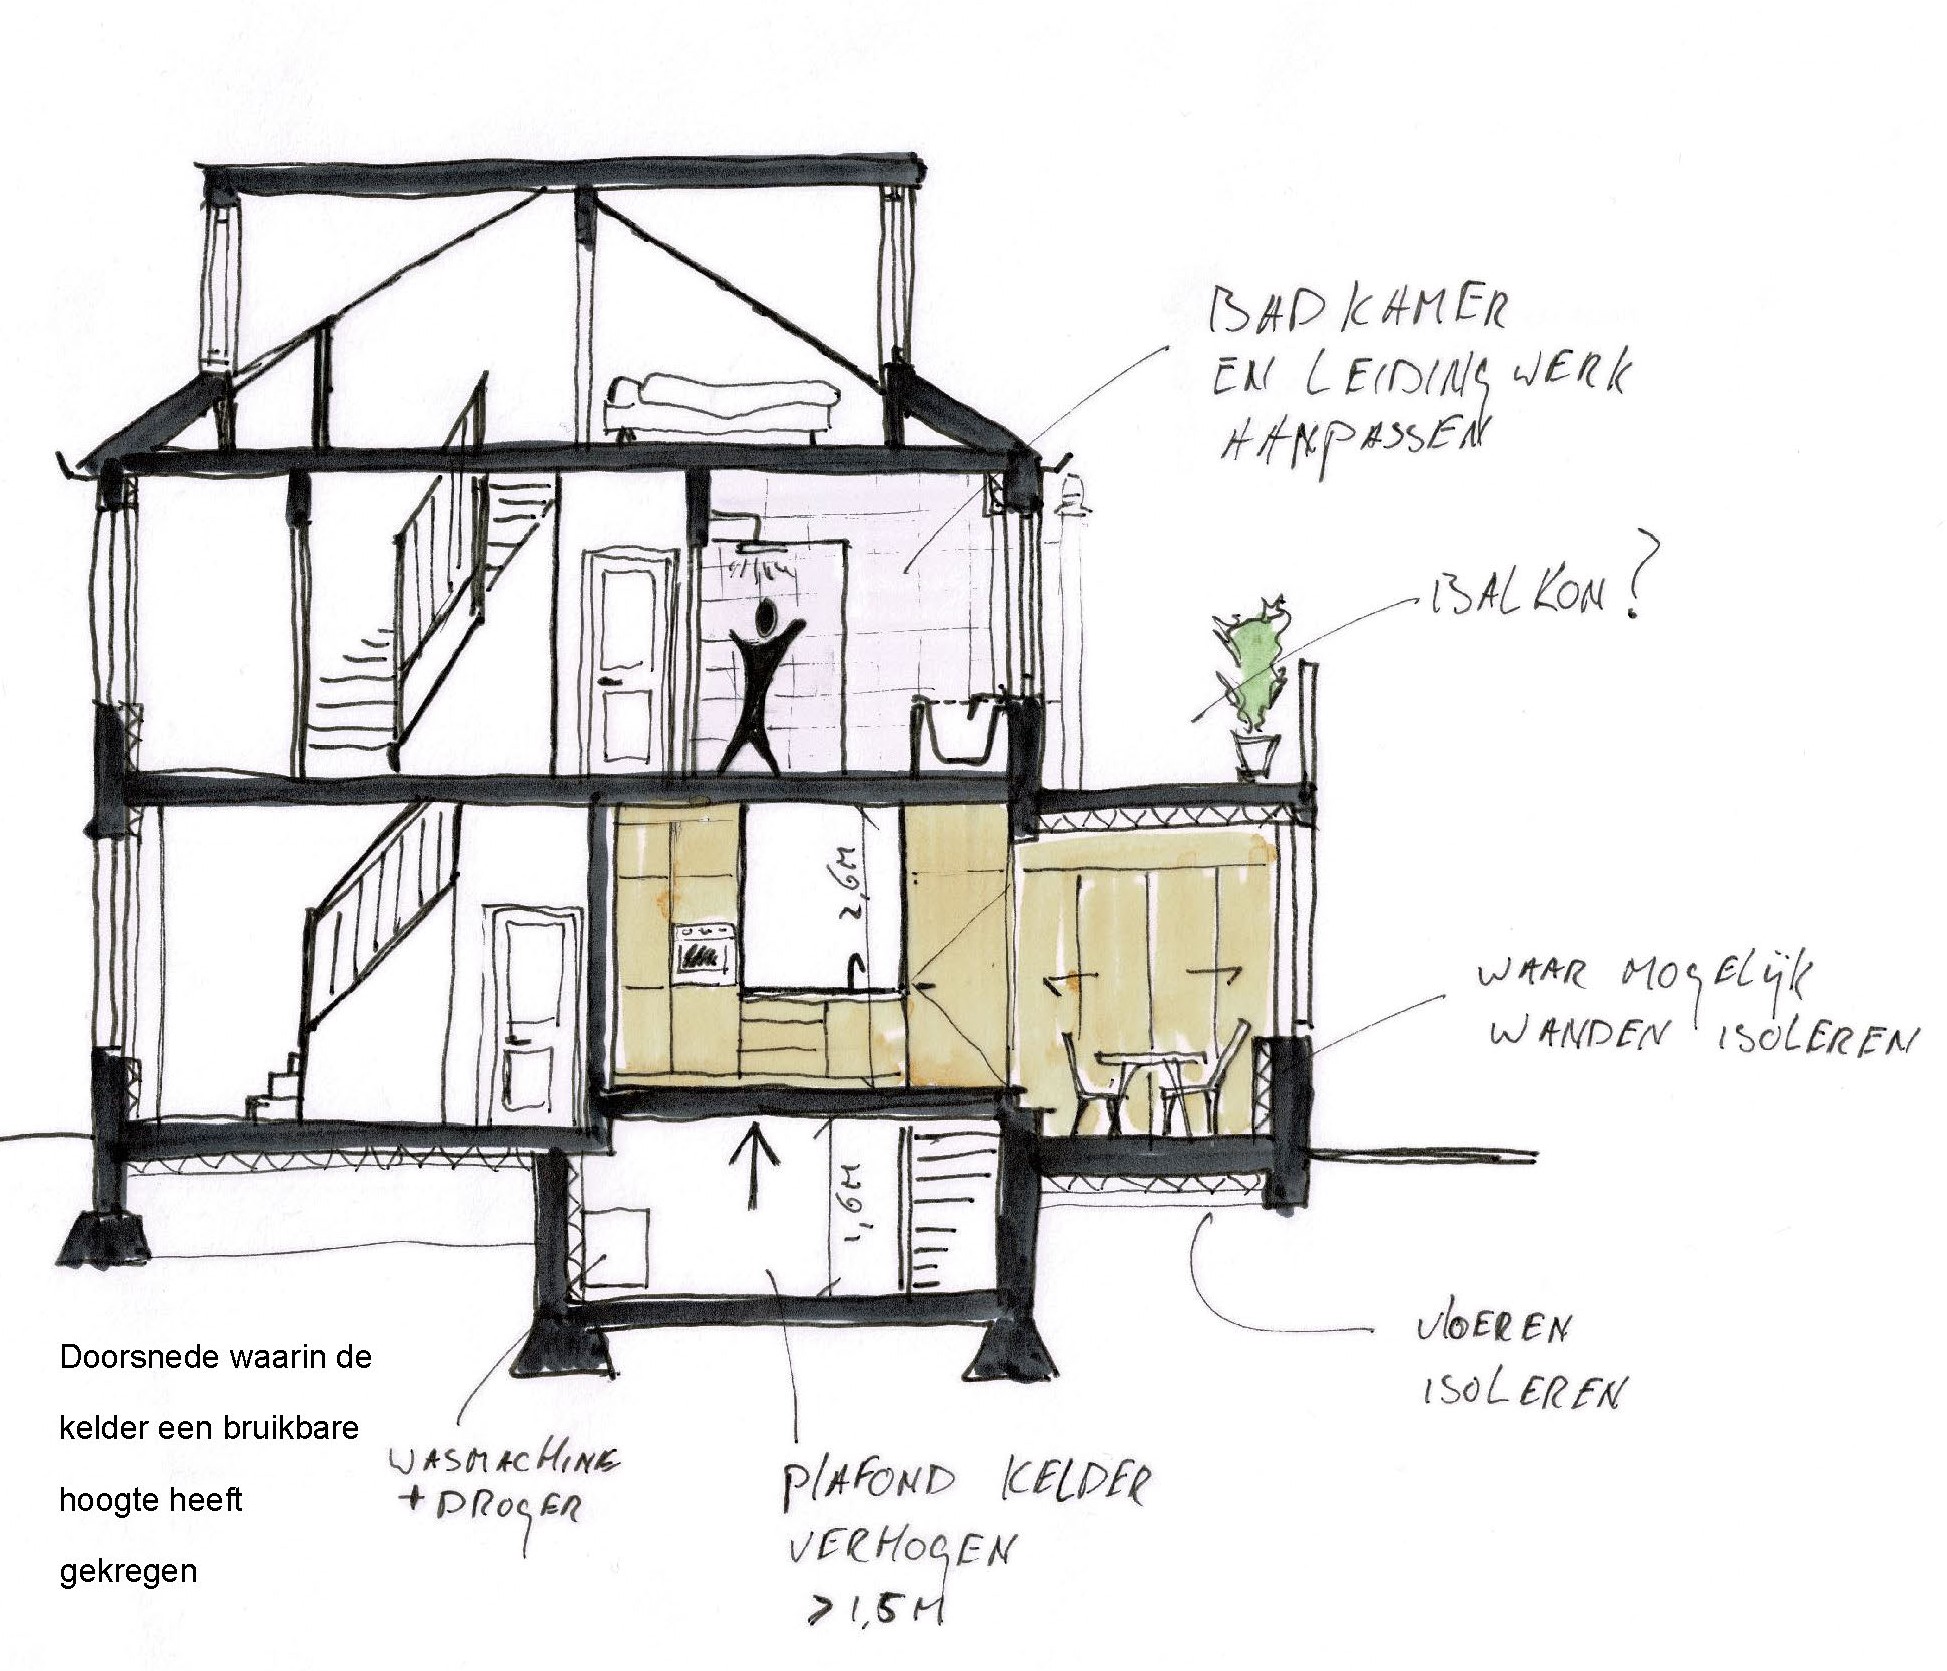 BADKAMER
EN LEIDINGWERK
AANPASSEN
BALKON?
2,6M
WAAR MOGELIJK
WANDEN ISOLEREN
1,6M
VLOEREN
ISOLEREN
Doorsnede waarin de
kelder een bruikbare
hoogte heeft
gekregen
WASMACHINE
+ DROGER
PLAFOND KELDER
VERHOGEN
> 1,5M